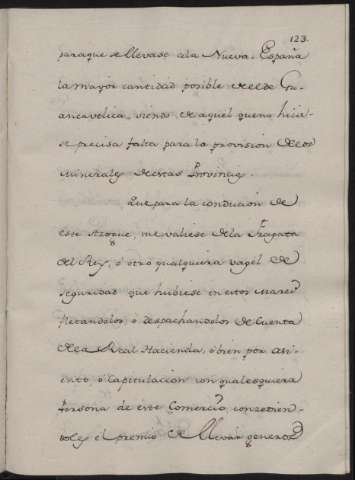 123.
paraque se llevase ala Nueva España
la mayor cantidad posible de el de Gu-
ancavelica, siendo de aquel que no hicie-
se precisa falta para la provision de los
Minerales de estas Provincias.
Que para la conducion de
este Azogue, me valiese de la Fragata
del Rey, ó otro qualquiera vagel de
seguridad que hubiese en estos Mares
fletandolos, ó despachandolos de Cuenta
de la Real Hacienda, ó bien por asi-
ento, ó Capitulacion con qualesquiera
Persona de este Comercio, concedien-
doles el premio de llevar generos